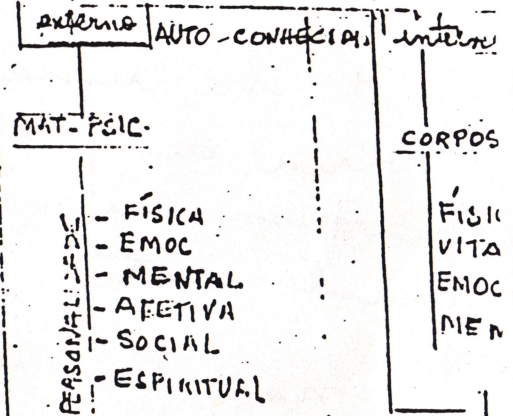 externo
AUTO-CONHECIM.
MAT-PSIC.
PERSONALIDADE
- FÍSICA
- EMOC
- MENTAL
- AFETIVA
- SOCIAL
- ESPIRITUAL
CORPOS
FÍSIC
VITA
EMOC
MEN